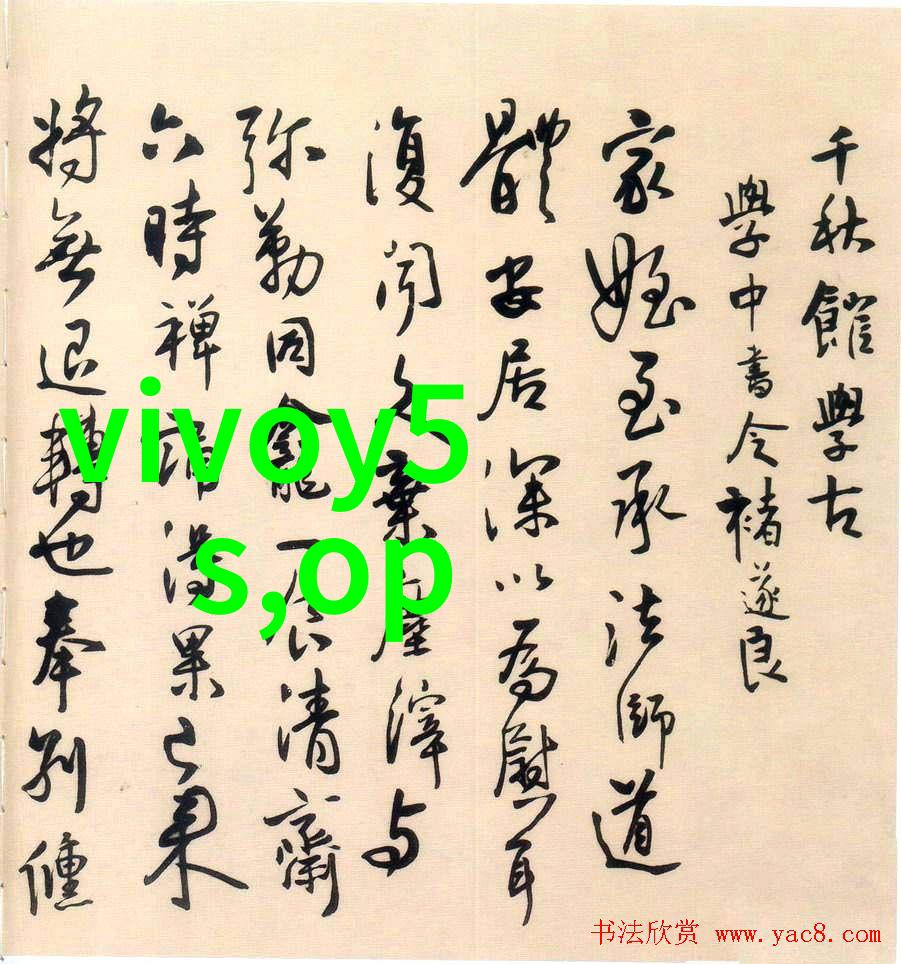 千秋館學古
學中書令褚遂良
家姪至承法師道
體安居深以為慰耳
復聞久棄塵滓与
弥勒同龕一食清齋
六時禪誦得果已來
將無退轉也奉別
vivoy5
s,op
书法欣赏 www.yac8.com